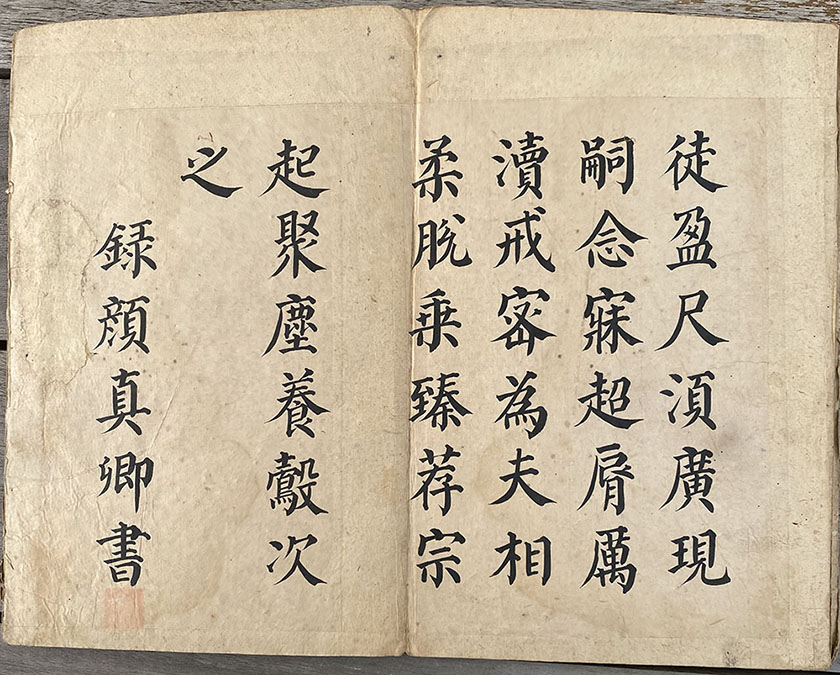 徒盈尺須廣現
嗣念寐超屑厲
瀆戒密為夫相
柔脫乗臻荐宗
起聚塵養鷇次
之
録顔真卿書